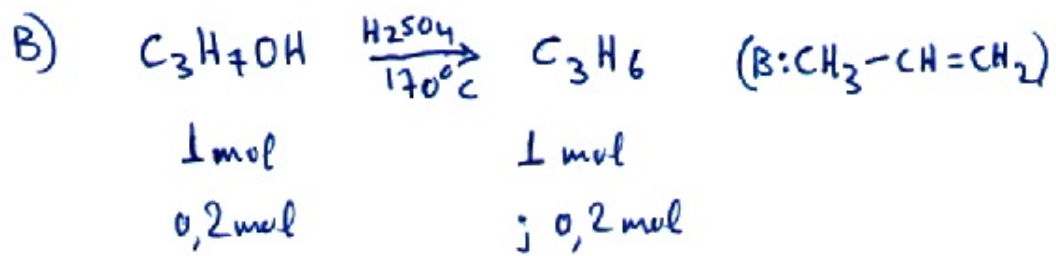 B) C₃H₇OH H₂SO₄ → 170°C C₃H₆ (B:CH₃-CH=CH₂)
1 mol 1 mol
0,2 mol ; 0,2 mol